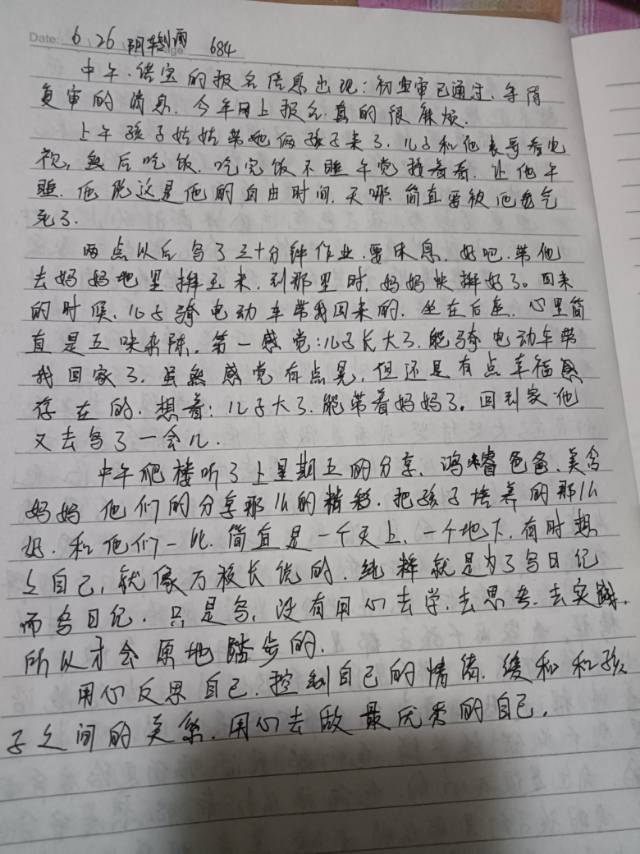 Date: 6.26 阴转雨 684
中午.佳宝的报名信息出现:初查审已通过.等待
复审的消息.今年网上报名真的很麻烦.
上午孩子姑姑带她俩孩子来了.儿子和他表哥看电
视,然后吃饭.吃完饭不睡午觉接着看.让他午
睡.他说这是他的自由时间.天哪.简直要被他气
死了.
两点以后写了三十分钟作业.要休息.好吧.带他
去妈妈地里掰玉米.到那里时.妈妈快掰好了。回来
的时候.儿子骑电动车带我回来的.坐在后座.心里简
直是五味杂陈.第一感觉:儿子长大了.能骑电动车带
我回家了.虽然感觉有点晃,但还是有点幸福感
存在的.想着:儿子大了.能带着妈妈了。回到家他
又去写了一会儿.
中午爬楼听了上星期五的分享.鸿睿爸爸.美含
妈妈他们的分享那么的精彩.把孩子培养的那么
好.和他们一比.简直是一个天上.一个地下.有时想
自己,就像万校长说的.纯粹就是为了写日记
而写日记.只是写,没有用心去学.去思考.去实践.
所以才会原地踏步的.
用心反思自己.控制自己的情绪.缓和和孩
子之间的关系.用心去做最优秀的自己.